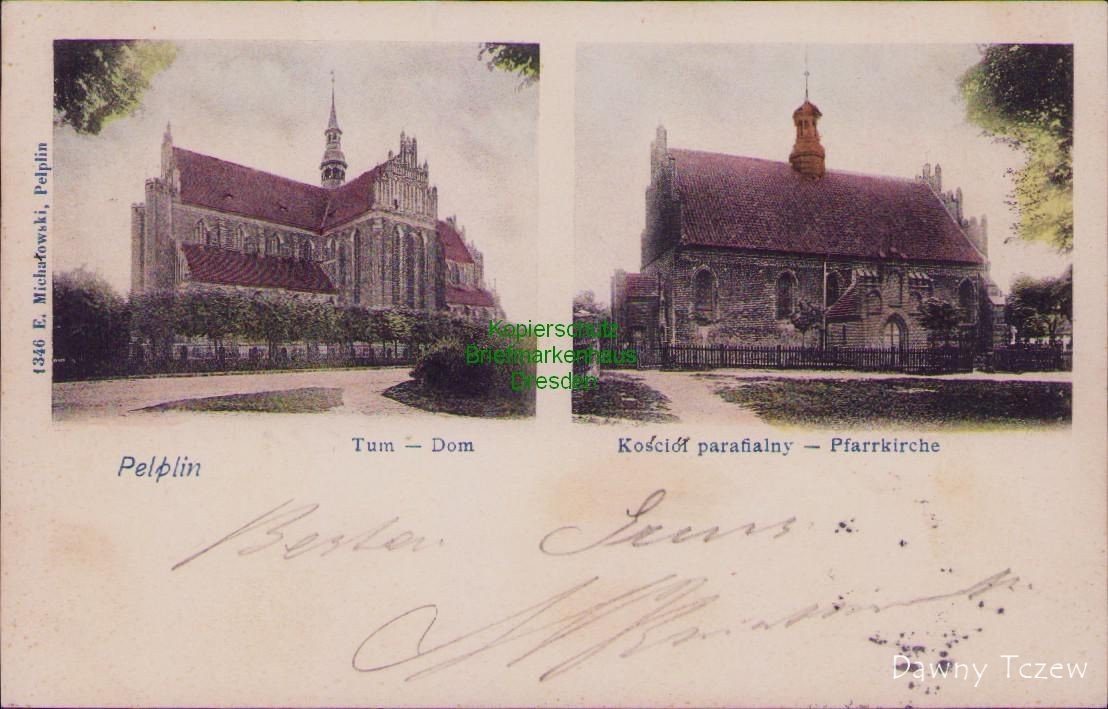 1346 E. Michałowski, Pelplin
Kopierschutz
Briefmarkenhaus
Dresden
Tum — Dom
Kościół parafialny — Pfarrkirche
Pelplin
Besten Gruss
Dawny Tczew